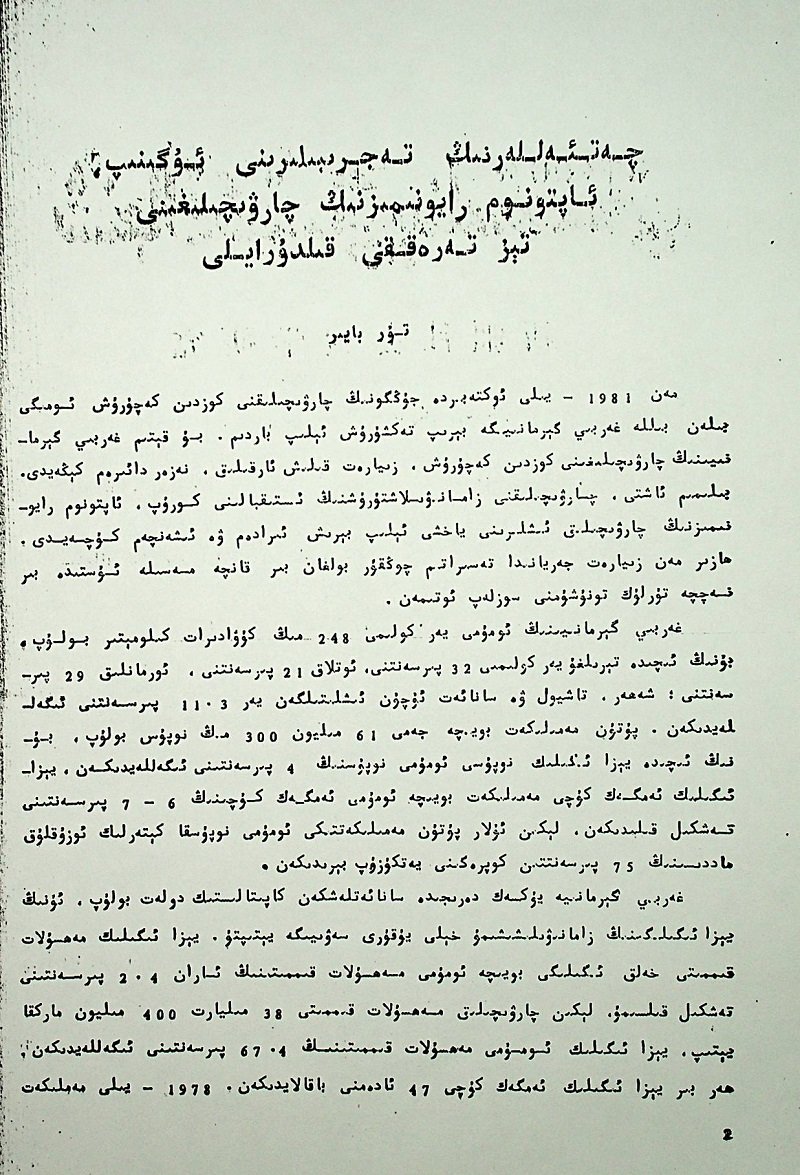 چەتئەللەرنىڭ تەجرىبىلىرىنى ئۈگىنىپ،
ئاپتونوم رايونىمىزنىڭ چارۋىچىلىغىنى
تېز تەرەققى قىلدۇرايلى
تۇر بايىر
مەن 1981 – يىلى ئوكتەبىردە جۇڭگونىڭ چارۋىچىلىقنى كوزدىن كەچۈرۈش ئومىگى
بىلەن بىللە غەربىي گېرمانىيىگە بېرىپ تەكشۈرۈش ئېلىپ باردىم. بۇ قېتىم غەربىي گېرما–
نىيىنىڭ چارۋىچىلىغىنى كوزدىن كەچۈرۈش، زىيارەت قىلىش ئارقىلىق، نەزەر دائىرەم كېڭەيدى.
بىلىمىم ئاشتى، چارۋىچىلىقنى زامانىۋىلاشتۇرۇشنىڭ ئىستىقبالىنى كورۇپ، ئاپتونوم رايو–
نىمىزنىڭ چارۋىچىلىق ئىشلىرىنى ياخشى ئېلىپ بېرىش ئىرادەم ۋە ئىشەنچەم كۈچەيدى.
ھازىر مەن زىيارەت جەريانىدا تەسىراتىم چوڭقۇر بولغان بىر قانچە مەسىلە ئۈستىدە بىر
قەچچە تۈرلۈك تونۇشۇمنى سوزلەپ ئوتىمەن.
غەربىي گېرمانىيىنىڭ ئومۇمى يەر كولىمى 248 مىڭ كۋادىرات كىلومېتىر بولۇپ،
بۇنىڭ ئىچىدە تېرىلغۇ يەر كولىمى 32 پىرسەنتنى، ئوتلاق 21 پىرسەنتنى، ئورمانلىق 29 پىر–
سەنتنى؛ شەھەر، تاشيول ۋە سانائەت ئۈچۈن ئىشلىتىلگەن يەر 11.3 پىرسەنتنى ئىگەل–
لەيدىكەن. پۈتۈن مەملىكەت بويىچە جەمى 61 مىليون 300 مىڭ نوپۇس بولۇپ، بۇ–
نىڭ ئىچىدە يېزا ئىگىلىك نوپۇسى ئومۇمى نوپۇسنىڭ 4 پىرسەنتىنى ئىگەللەيدىكەن، يېزا–
ئىگىلىك ئەمگەك كۈچى مەملىكەت بويىچە ئومۇمى ئەمگەك كۈچىنىڭ 6 – 7 پىرسەنتىنى
تەشكىل قىلىدىكەن. لېكىن ئۇلار پۈتۈن مەملىكەتتىكى ئومۇمى نوپۇسقا كېتەرلىك ئوزۇقلۇق
ماددىسىنىڭ 75 پىرسەنتتىن كوپرەگىنى يەتكۈزۈپ بېرىدىكەن.
غەربىي گېرمانىيە يۈكسەك دەرىجىدە سانائەتلەشكەن كاپىتالىستىك دولەت بولۇپ، ئۇنىڭ
يېزا ئىگىلىگىنىڭ زامانىۋىلىشىشىمۇ خېلى يۇقۇرى سەۋىيىگە يېتىپتۇ. يېزا ئىگىلىك مەھسۇلات
قىممىتى خەلق ئىگىلىكى بويىچە ئومۇمى مەھسۇلات قىممىتىنىڭ ئاران 2.4 پىرسەنتىنى
تەشكىل قىلسىمۇ، لېكىن چارۋىچىلىق مەھسۇلات قىممىتى 38 مىليارت 400 مىليون ماركقا
يېتىپ، يېزا ئىگىلىك ئومۇمى مەھسۇلات قىممىتىنىڭ 67.4 پىرسەنتىنى ئىگەللەيدىكەن؛
ھەر بىر يېزا ئىگىلىك ئەمگەك كۈچى 47 ئادەمنى باقالايدىكەن. 1978 – يىلى مەملىكەت
2